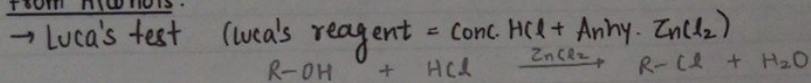 From Alcohols.
→ Luca's test (Luca's reagent = Conc. HCl + Anhy. ZnCl2)
R-OH + HCl ZnCl2→ R-Cl + H2O